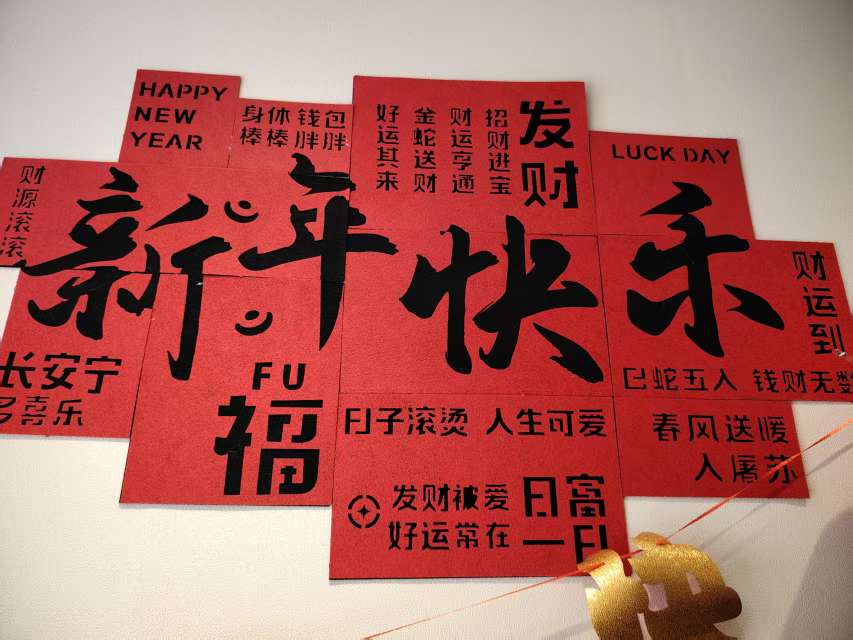 HAPPY
NEW
YEAR
身体 钱包
棒棒 胖胖
好运其来
金蛇送财
财运亨通
招财进宝
发财
LUCK DAY
财源滚滚
新年快乐
财运到
长安宁
多喜乐
FU
福
日子滚烫 人生可爱
巳蛇五入 钱财无数
春风送暖
入屠苏
发财被爱
好运常在
日富
一日